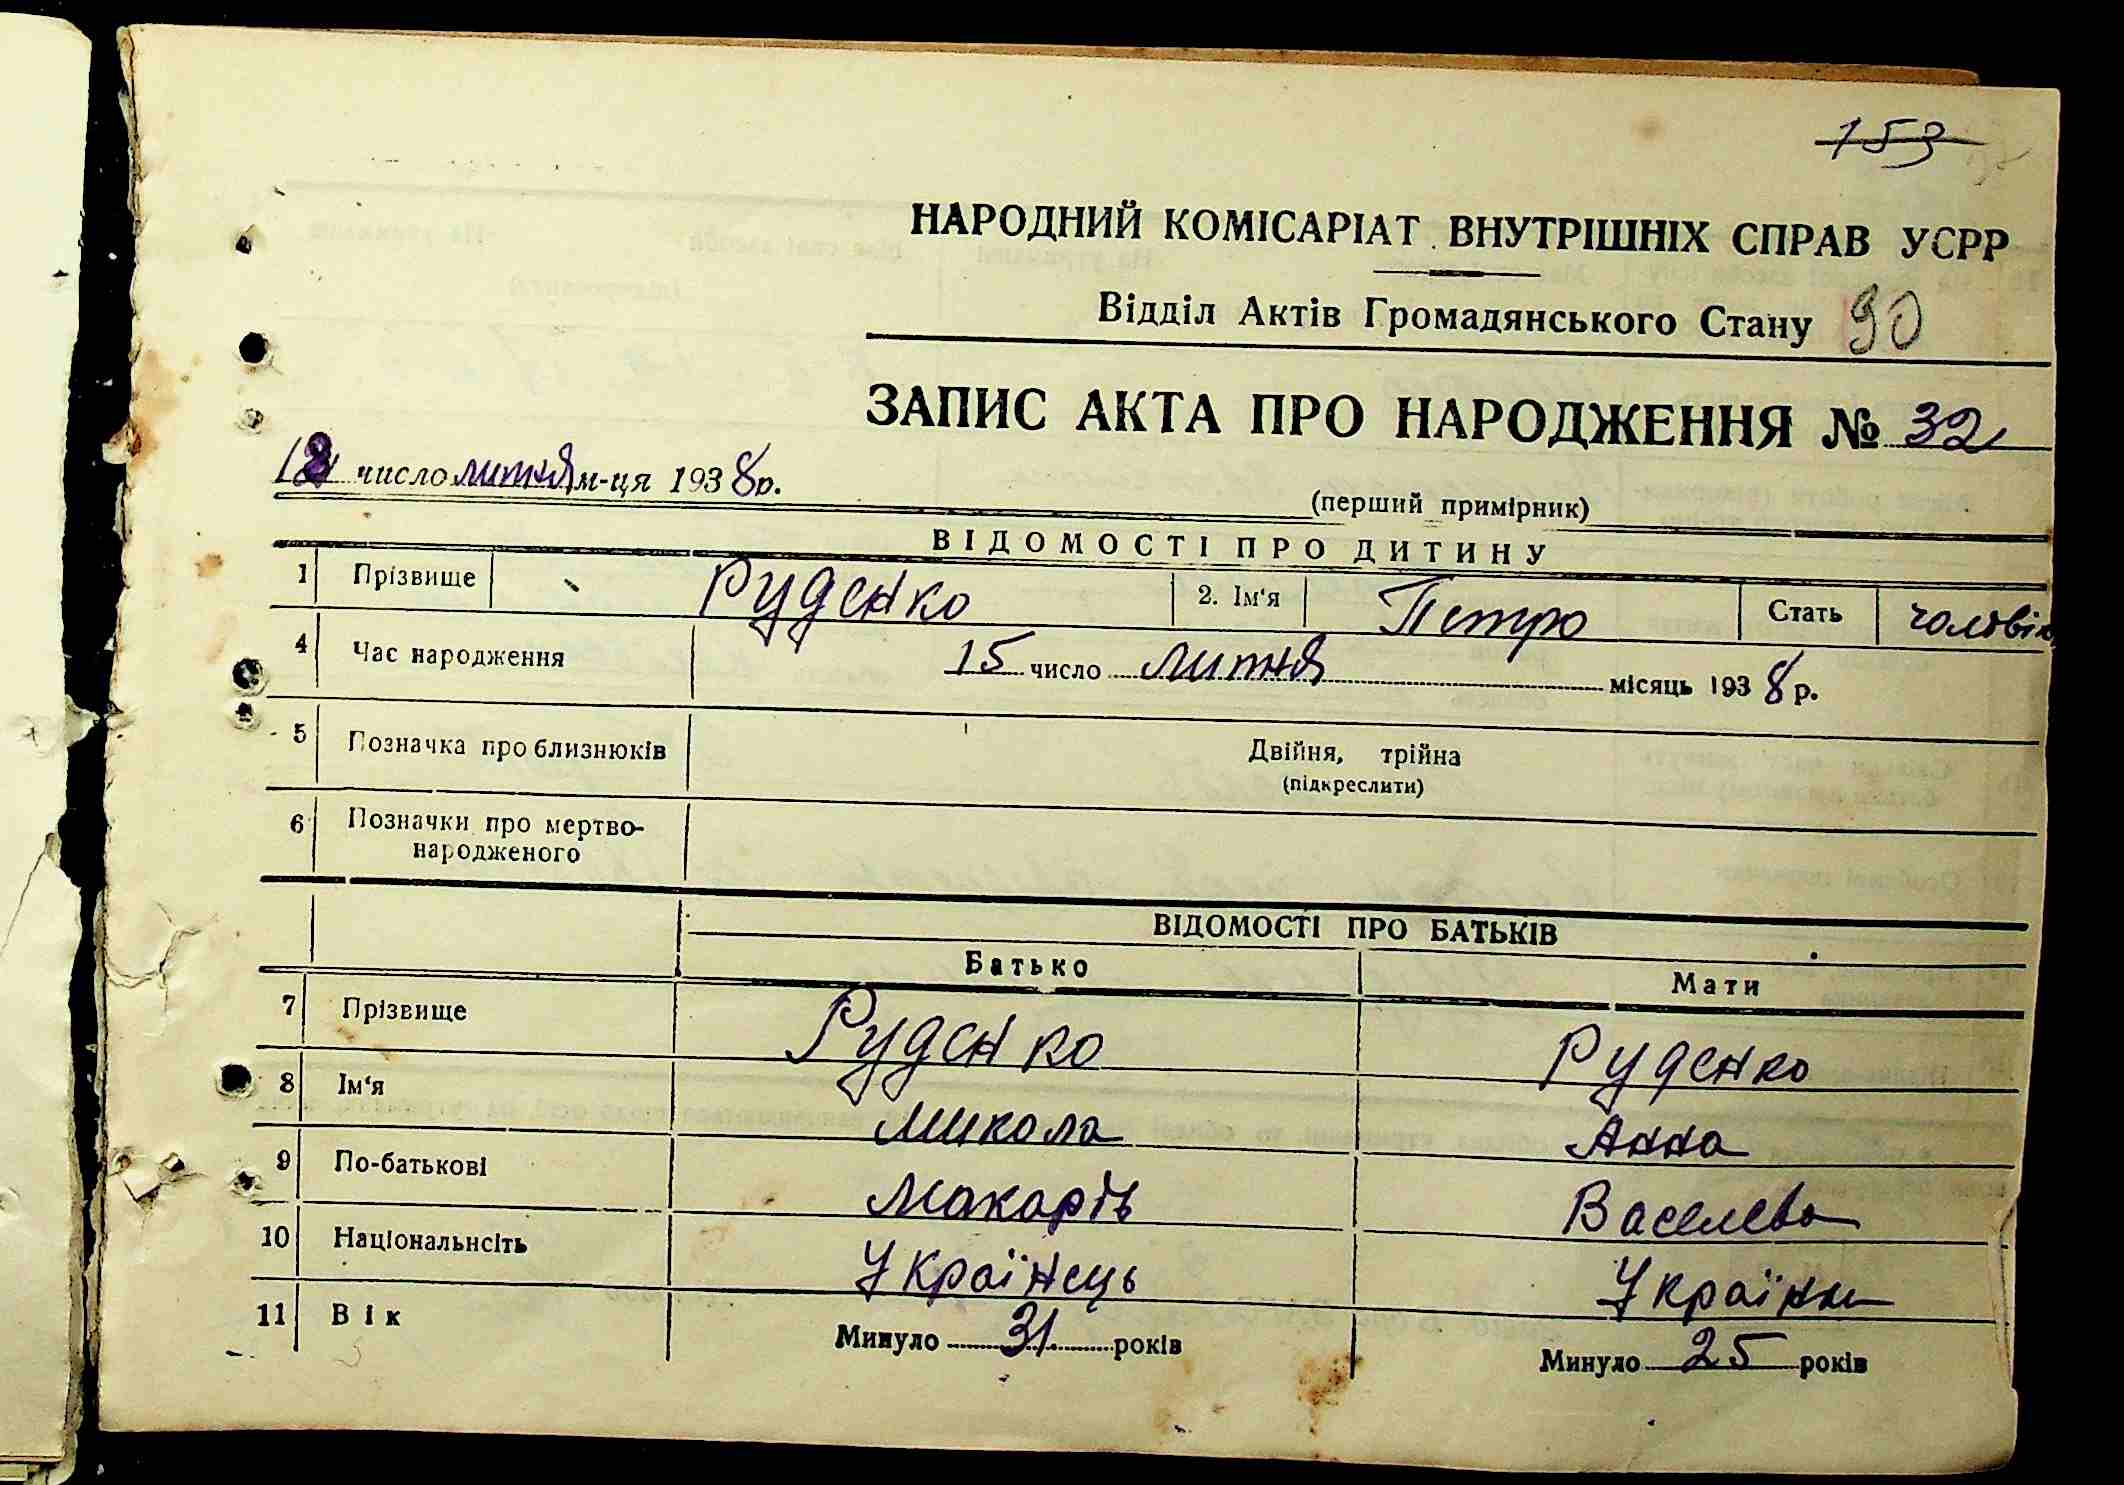 153
НАРОДНИЙ КОМІСАРІАТ ВНУТРІШНІХ СПРАВ УСРР
Відділ Актів Громадянського Стану 90
ЗАПИС АКТА ПРО НАРОДЖЕННЯ № 32
число лютня м-ця 1938 р.
(перший примірник)
ВІДОМОСТІ ПРО ДИТИНУ
1 Прізвище Руденко 2. Ім'я Петро Стать чоловік
4 Час народження 15 число лютня місяць 1938 р.
5 Позначка про близнюків Двійня, трійна
(підкреслити)
6 Позначки про мертво-
народженого
ВІДОМОСТІ ПРО БАТЬКІВ
Батько Мати
7 Прізвище Руденко Руденко
8 Ім'я Микола Анна
9 По-батькові Макарів Васелева
10 Національнсіть Українець Українк
11 Вік Минуло 31 років Минуло 25 років